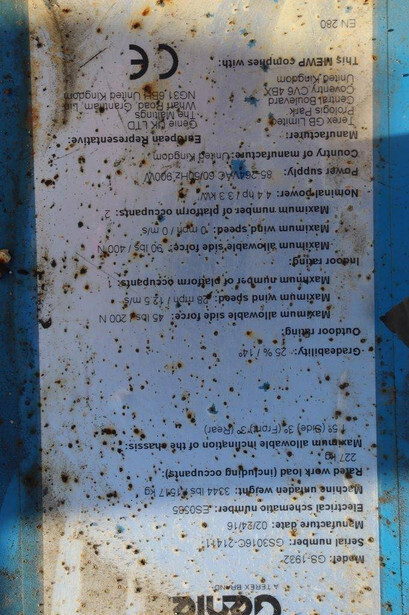 Genie
A TEREX BRAND
Model: GS-1932
Serial number: GS3016C-21411
Manufacture date: 02/24/16
Electrical schematic number: ES0585
Machine unladen weight: 3344 lbs / 1517 kg
Rated work load (including occupants):
227 kg
Maximum allowable inclination of the chassis:
1.5° (Side) 3° (Front) 3° (Rear)
Gradeability: 25 % / 14°
Outdoor rating:
Maximum allowable side force: 45 lbs / 200 N
Maximum wind speed: 28 mph / 12.5 m/s
Maximum number of platform occupants: 1
Indoor rating:
Maximum allowable side force: 90 lbs / 400 N
Maximum wind speed: 0 mph / 0 m/s
Maximum number of platform occupants: 2
Nominal power: 4.4 hp / 3.3 kW
Power supply: 85-264VAC 60/50Hz 900W
Country of manufacture: United Kingdom
Manufacturer: European Representative:
Terex GB Limited Genie UK LTD
Prologis Park The Maltings
Central Boulevard Wharf Road, Grantham, Lin
Coventry, CV6 4BX NG31 6BH United Kingdom
United Kingdom
This MEWP complies with:
CE
EN 280